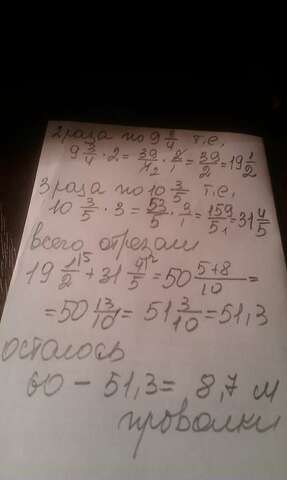 2 раза по 9 3/4 т.е.
9 3/4 · 2 = 39/4 2 · 2/1 = 39/2 = 19 1/2
3 раза по 10 3/5 т.е.
10 3/5 · 3 = 53/5 · 3/1 = 159/5 = 31 4/5
всего отрезали
19 1/2 \5 + 31 4/5 \2 = 50 5+8/10 =
= 50 13/10 = 51 3/10 = 51,3
осталось
60 - 51,3 = 8,7 м
проволки